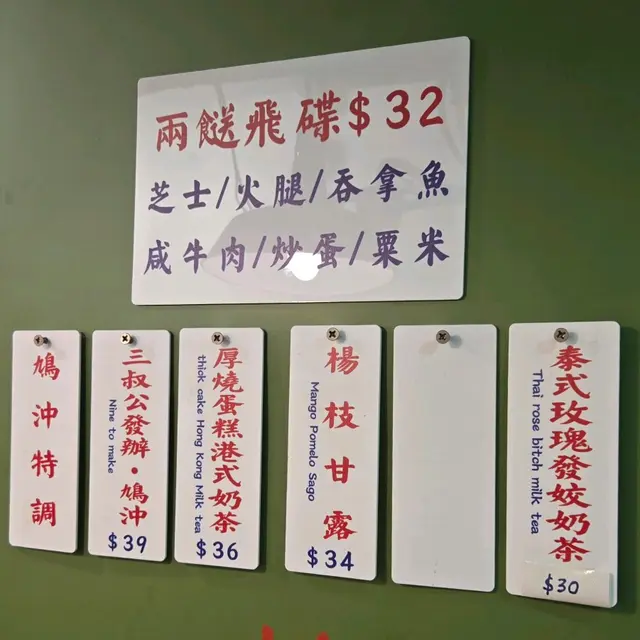 兩餸飛碟$32
芝士/火腿/吞拿魚
咸牛肉/炒蛋/粟米
鳩沖特調
三叔公發辦・鳩沖
Nine to make
$39
厚燒蛋糕港式奶茶
thick cake Hong Kong Milk tea
$36
楊枝甘露
Mango Pomelo Sago
$34
泰式玫瑰發姣奶茶
Thai rose bitch milk tea
$30